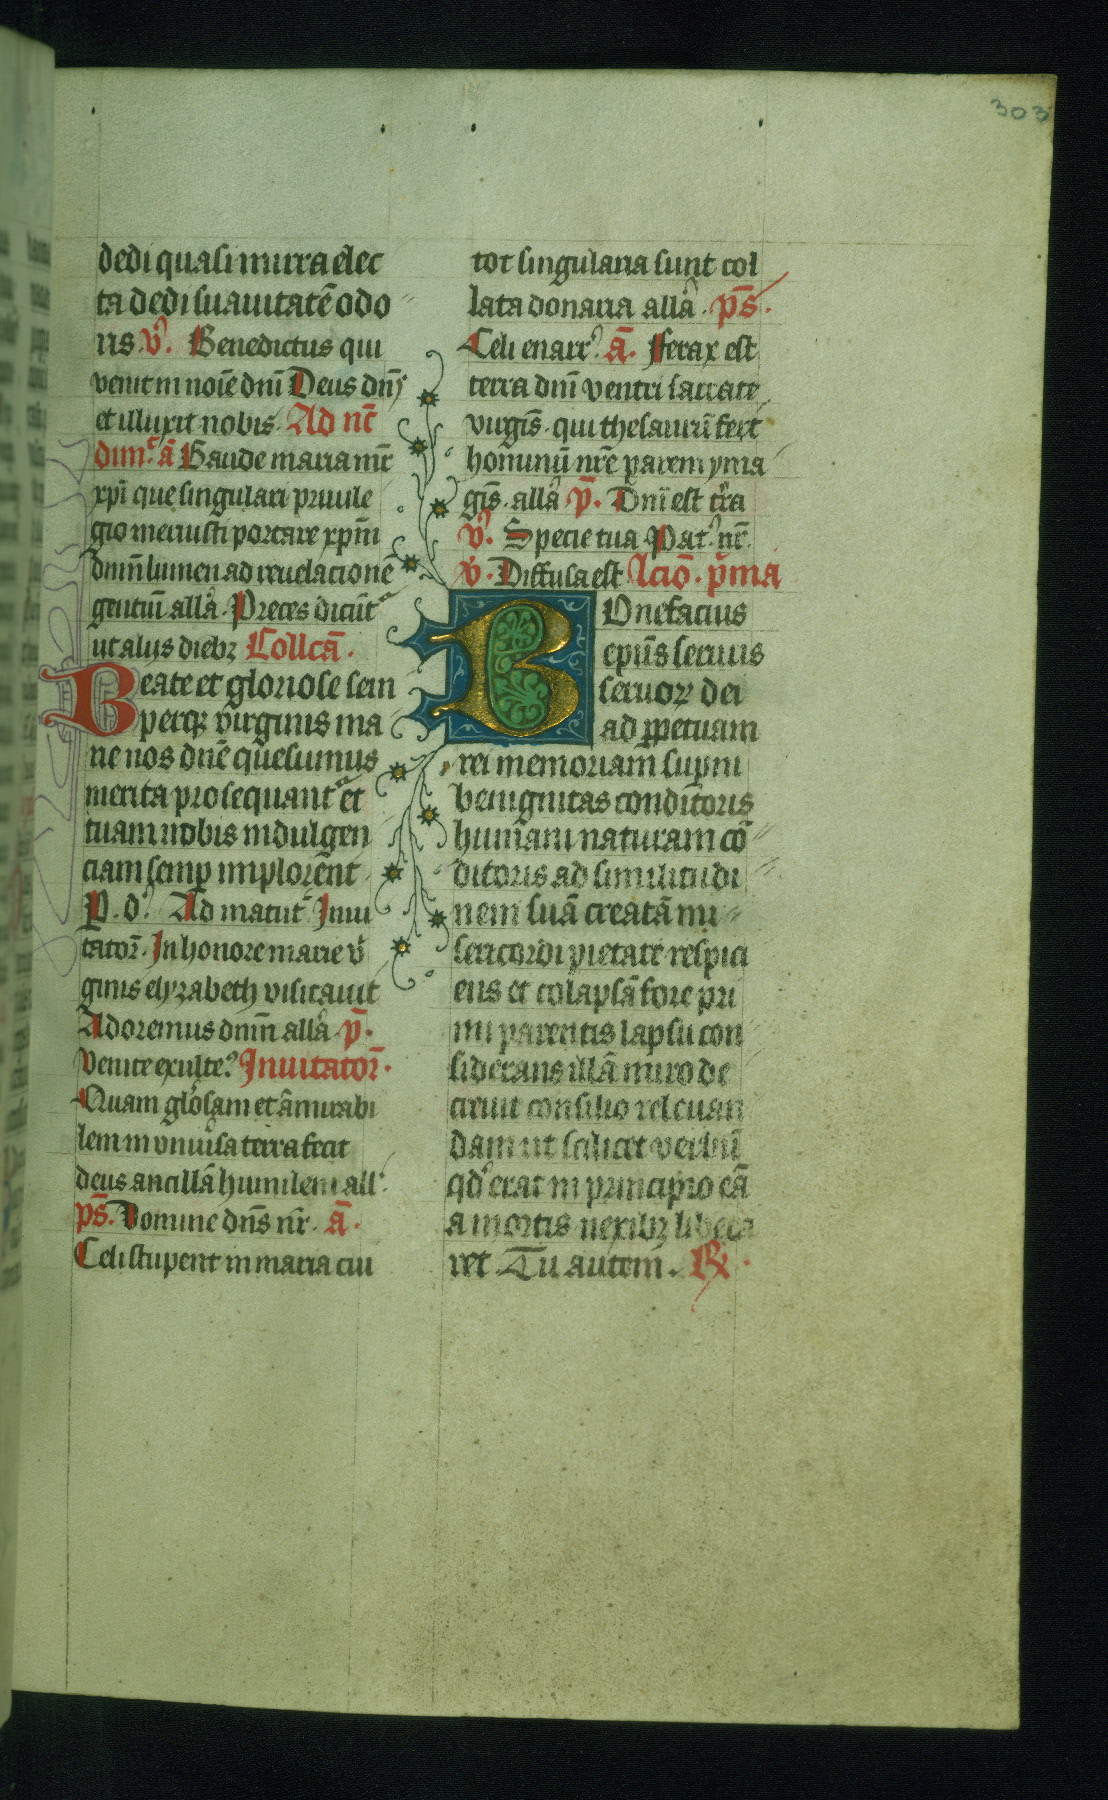 303
dedi quasi mirra elec
ta dedi suauitatē odo
ris v̾. Benedictus qui
venit in noīe dnī Deus dn̄s
et illuxit nobis. Ad nc̄
dim̄. ā Gaude maria mr̄
xpī que singulari priuile
gio meruisti portare xpm̄
dnm̄ lumen ad reuelacionē
gentiū all̄a. Preces dicūt᷑
ut aliis dieb⁊ Collcā.
Beate et gloriose sem
perq⁊ virginis ma
rie nos dn̄e quesumus
merita prosequant᷑ et
tuam nobis indulgen
ciam semp̄ implorent
P. d̾. Ad matut̄. Inui
tator̄. In honore marie v̾
ginis elyzabeth visitauit
Adoremus dnm̄ all̄a p̄.
Venite exulte᷑ Inuitator̄.
Quam gl̾osam et āmirabi
lem in vniu̾sa terra fecit
deus ancillā humilem all̾.
ps̄. Domine dn̄s nr̄. ā.
Celi stupent in maria cui
tot singularia sunt col
lata donaria all̄a. ps̄.
Celi enarr̾. ā. fferax est
terra dnī ventri sacrate
virgīs. qui thesaurū fert
hominū nr̄e parem yma
gīs. all̄a p̄. Dnī est tr̄a
v̾. Specie tua Pat̾. nr̄.
v̾. Diffusa est Lciō. p̄ma
Bonefacius
ep̄us seruus
seruor⁊ dei
ad ꝑpetuam
rei memoriam sup̄ni
benignitas conditoris
humani naturam cō
ditoris ad similitudi
nem suā creatā mi
sericordi pietate respici
ens et colapsā fore pri
mi parentis lapsu con
siderans illā miro de
creuit consilio releuan
dam ut scilicet verbū
qd̾ erat in principio eā
a mortis nexib⁊ libera
ret Tu autem. R̸.